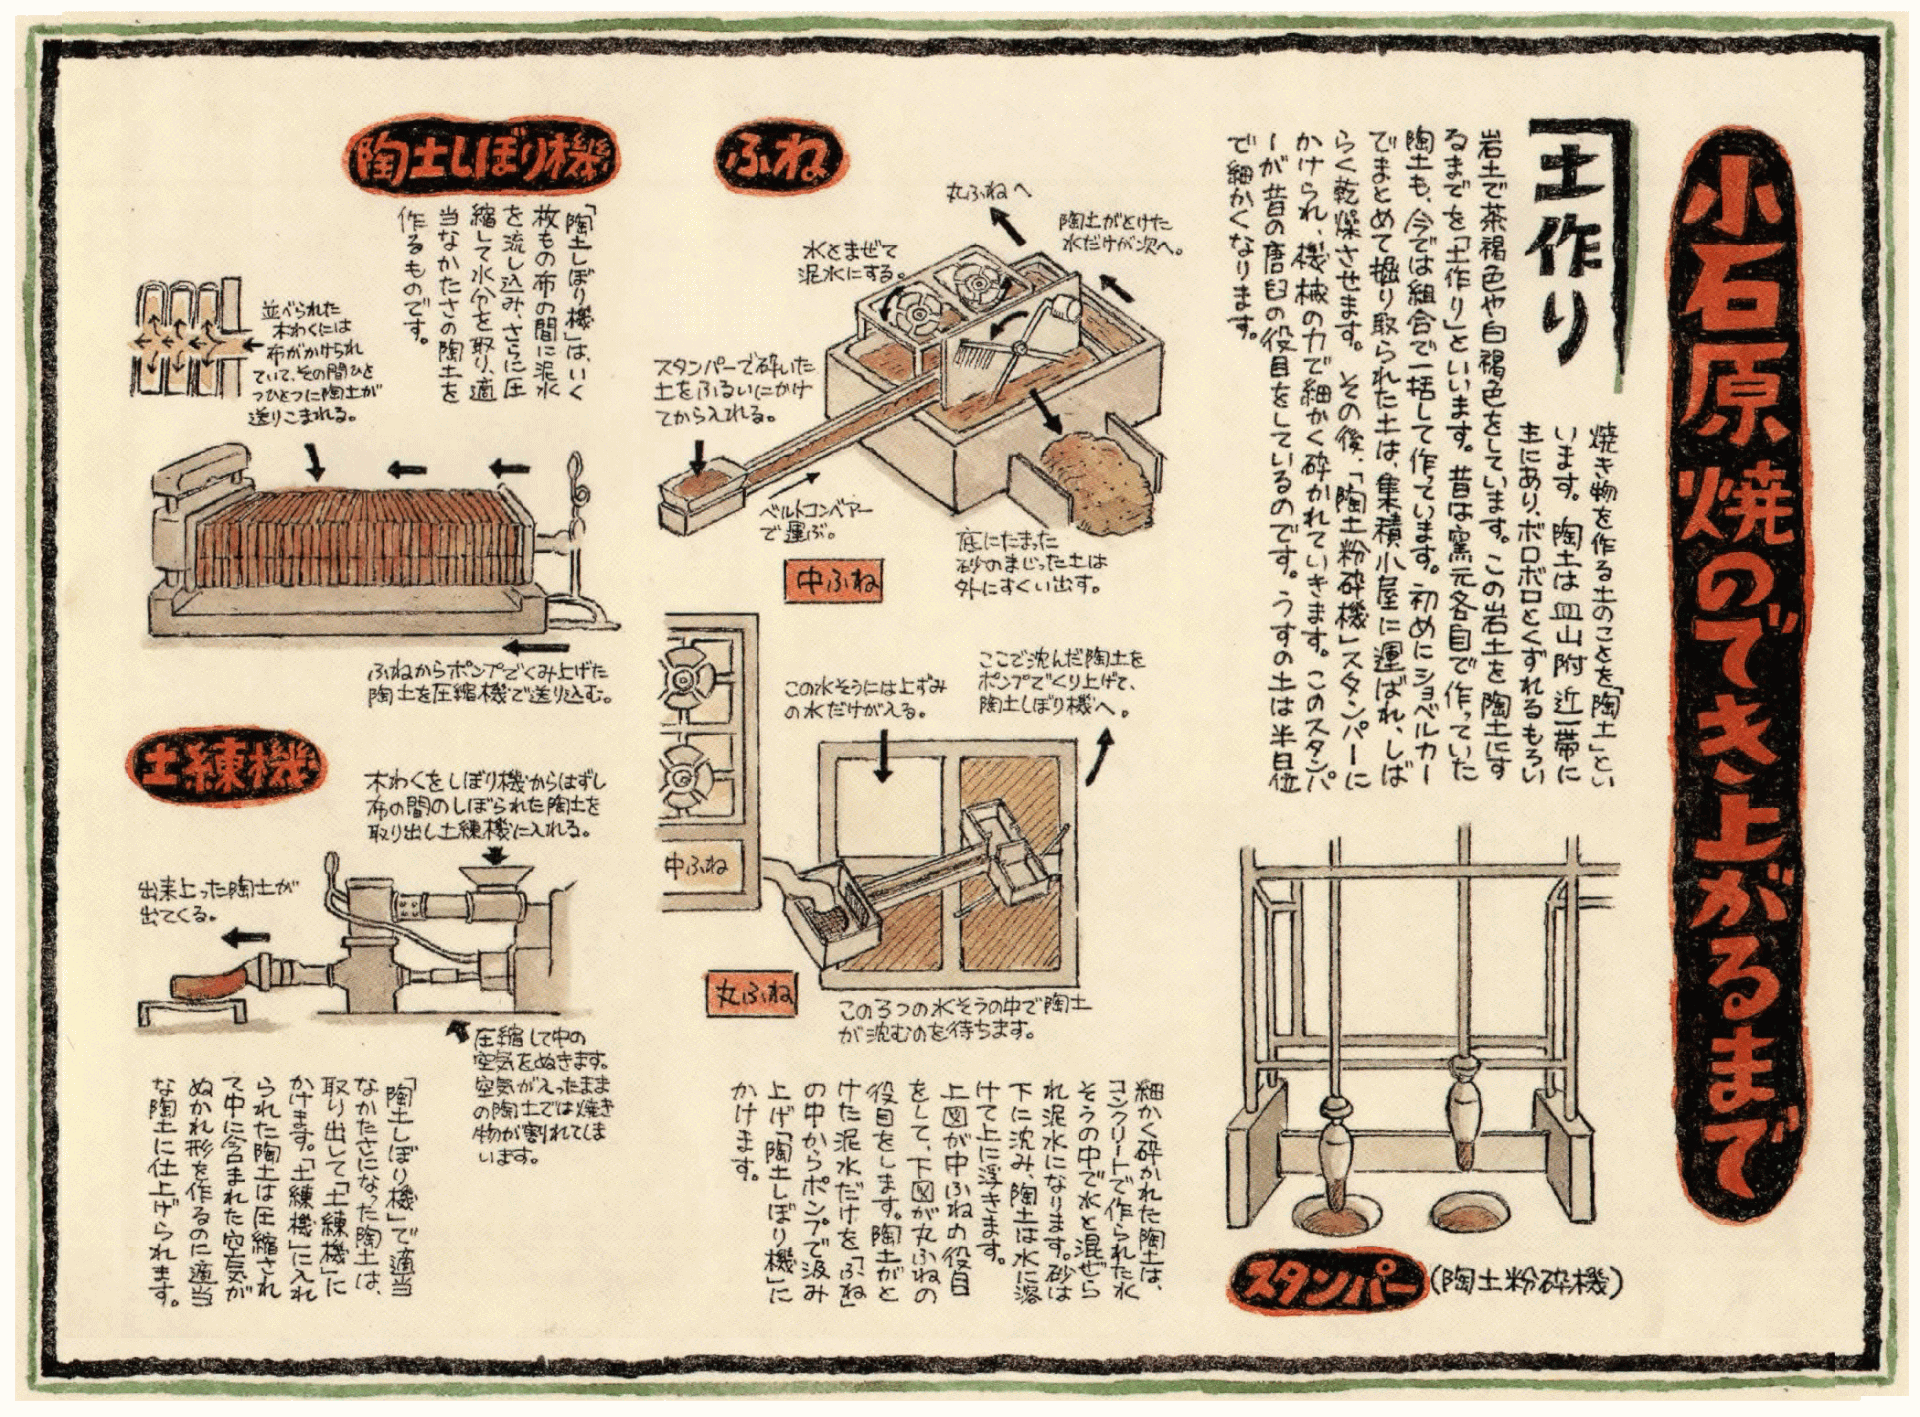 小石原焼のでき上がるまで
土作り
焼き物を作る土のことを「陶土」とい
います。陶土は皿山附近一帯に
主にあり、ボロボロとくずれるもろい
岩土で茶褐色や白褐色をしています。この岩土を陶土にす
るまでを「土作り」といいます。昔は窯元各自で作っていた
陶土も、今では組合で一括して作っています。初めにショベルカー
でまとめて掘り取られた土は、集積小屋に運ばれ、しば
らく乾燥させます。その後、「陶土粉砕機」スタンパーに
かけられ、機械の力で細かく砕かれていきます。このスタンパ
ーが昔の唐臼の役目をしているのです。うすの土は半日位
で細かくなります。
スタンパー(陶土粉砕機)
ふね
丸ふねへ
陶土がとけた
水だけが次へ。
水とまぜて
泥水にする。
スタンパーで砕いた
土をふるいにかけ
てから入れる。
ベルトコンベアー
で運ぶ。
底にたまった
砂のまじった土は
外にすくい出す。
中ふね
この水そうには上ずみ
の水だけが入る。
ここで沈んだ陶土を
ポンプでくり上げて、
陶土しぼり機へ。
中ふね
丸ふね
この3つの水そうの中で陶土
が沈むのを待ちます。
細かく砕かれた陶土は、
コンクリートで作られた水
そうの中で水と混ぜら
れ泥水になります。砂は
下に沈み、陶土は水に溶
けて上に浮きます。
上図が中ふねの役目
をして、下図が丸ふねの
役目をします。陶土がと
けた泥水だけを「ふね」
の中からポンプで汲み
上げ「陶土しぼり機」に
かけます。
陶土しぼり機
「陶土しぼり機」は、いく
枚もの布の間に泥水
を流し込み、さらに圧
縮して水分を取り、適
当なかたさの陶土を
作るものです。
並べられた
木わくには
布がかけられ
ていて、その間ひと
つひとつに陶土が
送りこまれる。
ふねからポンプでくみ上げた
陶土を圧縮機で送り込む。
土練機
木わくをしぼり機からはずし
布の間のしぼられた陶土を
取り出し土練機に入れる。
出来上った陶土が
出てくる。
圧縮して中の
空気をぬきます。
空気が入ったまま
の陶土では焼き
物が割れてしま
います。
「陶土しぼり機」で適当
なかたさになった陶土は、
取り出して「土練機」に
かけます。「土練機」に入れ
られた陶土は圧縮され
て中に含まれた空気が
ぬかれ形を作るのに適当
な陶土に仕上げられます。